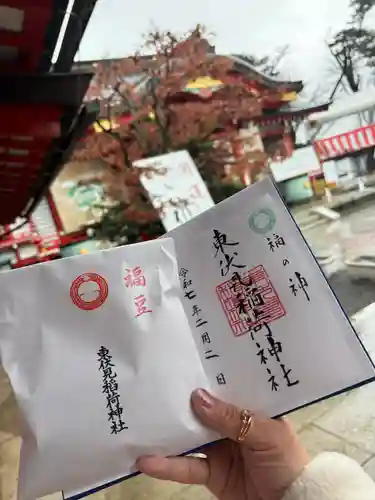 福豆
東伏見稲荷神社
福の神
東伏見稲荷神社
令和七年二月二日